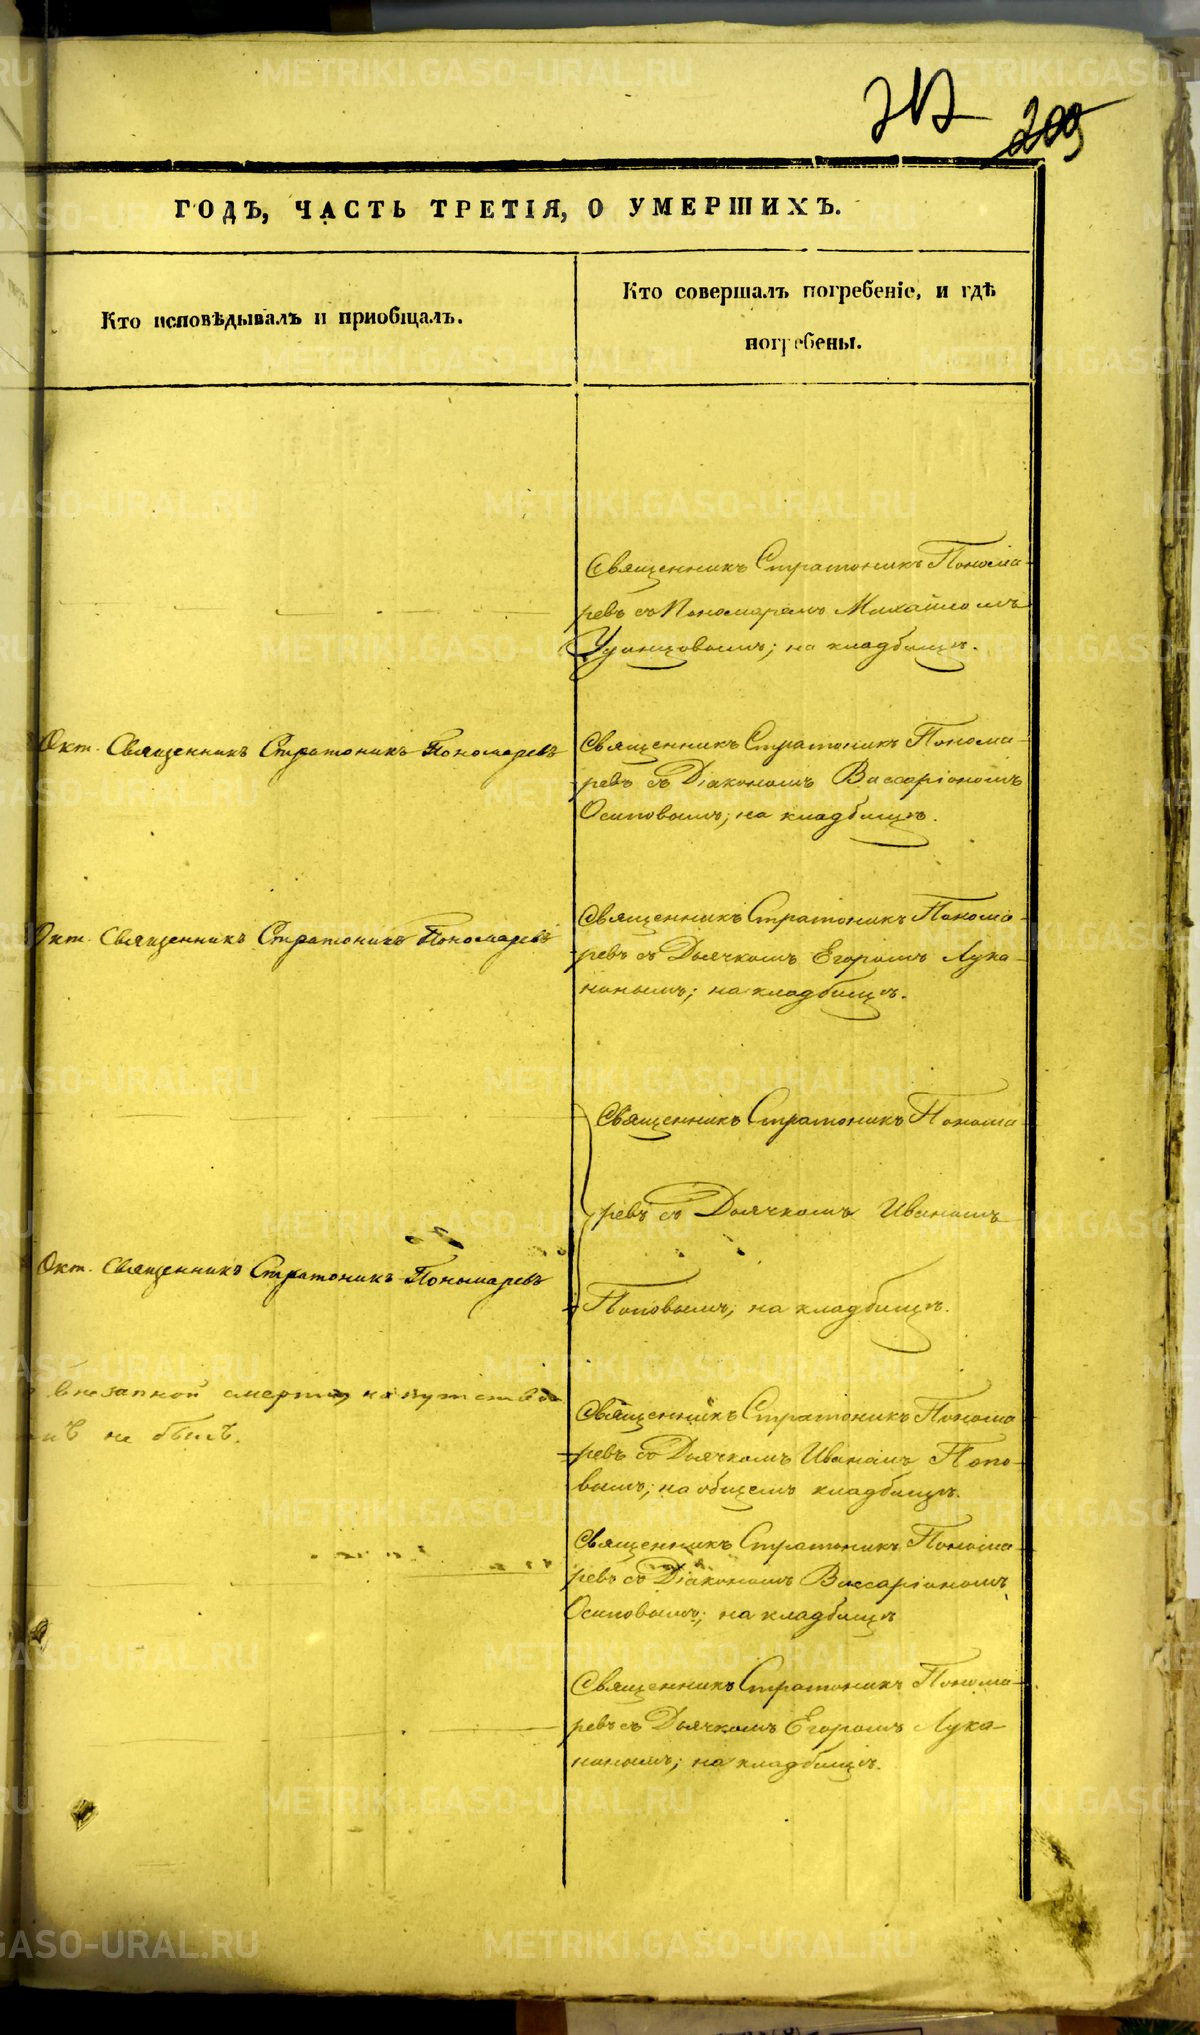 209
ГОДЪ, ЧАСТЬ ТРЕТІЯ, О УМЕРШИХЪ.
Кто исповѣдывалъ и пріобщалъ.
Кто совершалъ погребеніе, и гдѣ
погребены.
Священникъ Стратоникъ Понома-
ревъ съ Пономаремъ Михайломъ
на кладбищѣ.
Окт. Священникъ Стратоникъ Пономаревъ
Священникъ Стратоникъ Понома-
ревъ съ Діакономъ Виссаріономъ
Осиповымъ; на кладбищѣ.
Окт. Священникъ Стратоникъ Пономаревъ
Священникъ Стратоникъ Понома-
ревъ съ Дьячкомъ Егоромъ Лука-
нинымъ; на кладбищѣ.
Священникъ Стратоникъ Понома-
ревъ съ Дьячкомъ Иваномъ
Окт. Священникъ Стратоникъ Пономаревъ
Поповымъ; на кладбищѣ.
внезапной смерти
не былъ.
Священникъ Стратоникъ Понома-
ревъ съ Дьячкомъ Иваномъ Попо-
вымъ; на общемъ кладбищѣ.
Священникъ Стратоникъ Понома-
ревъ съ Діакономъ Виссаріономъ
Осиповымъ; на кладбищѣ
Священникъ Стратоникъ Понома-
ревъ съ Дьячкомъ Егоромъ Лука-
нинымъ; на кладбищѣ.
METRIKI.GASO-URAL.RU